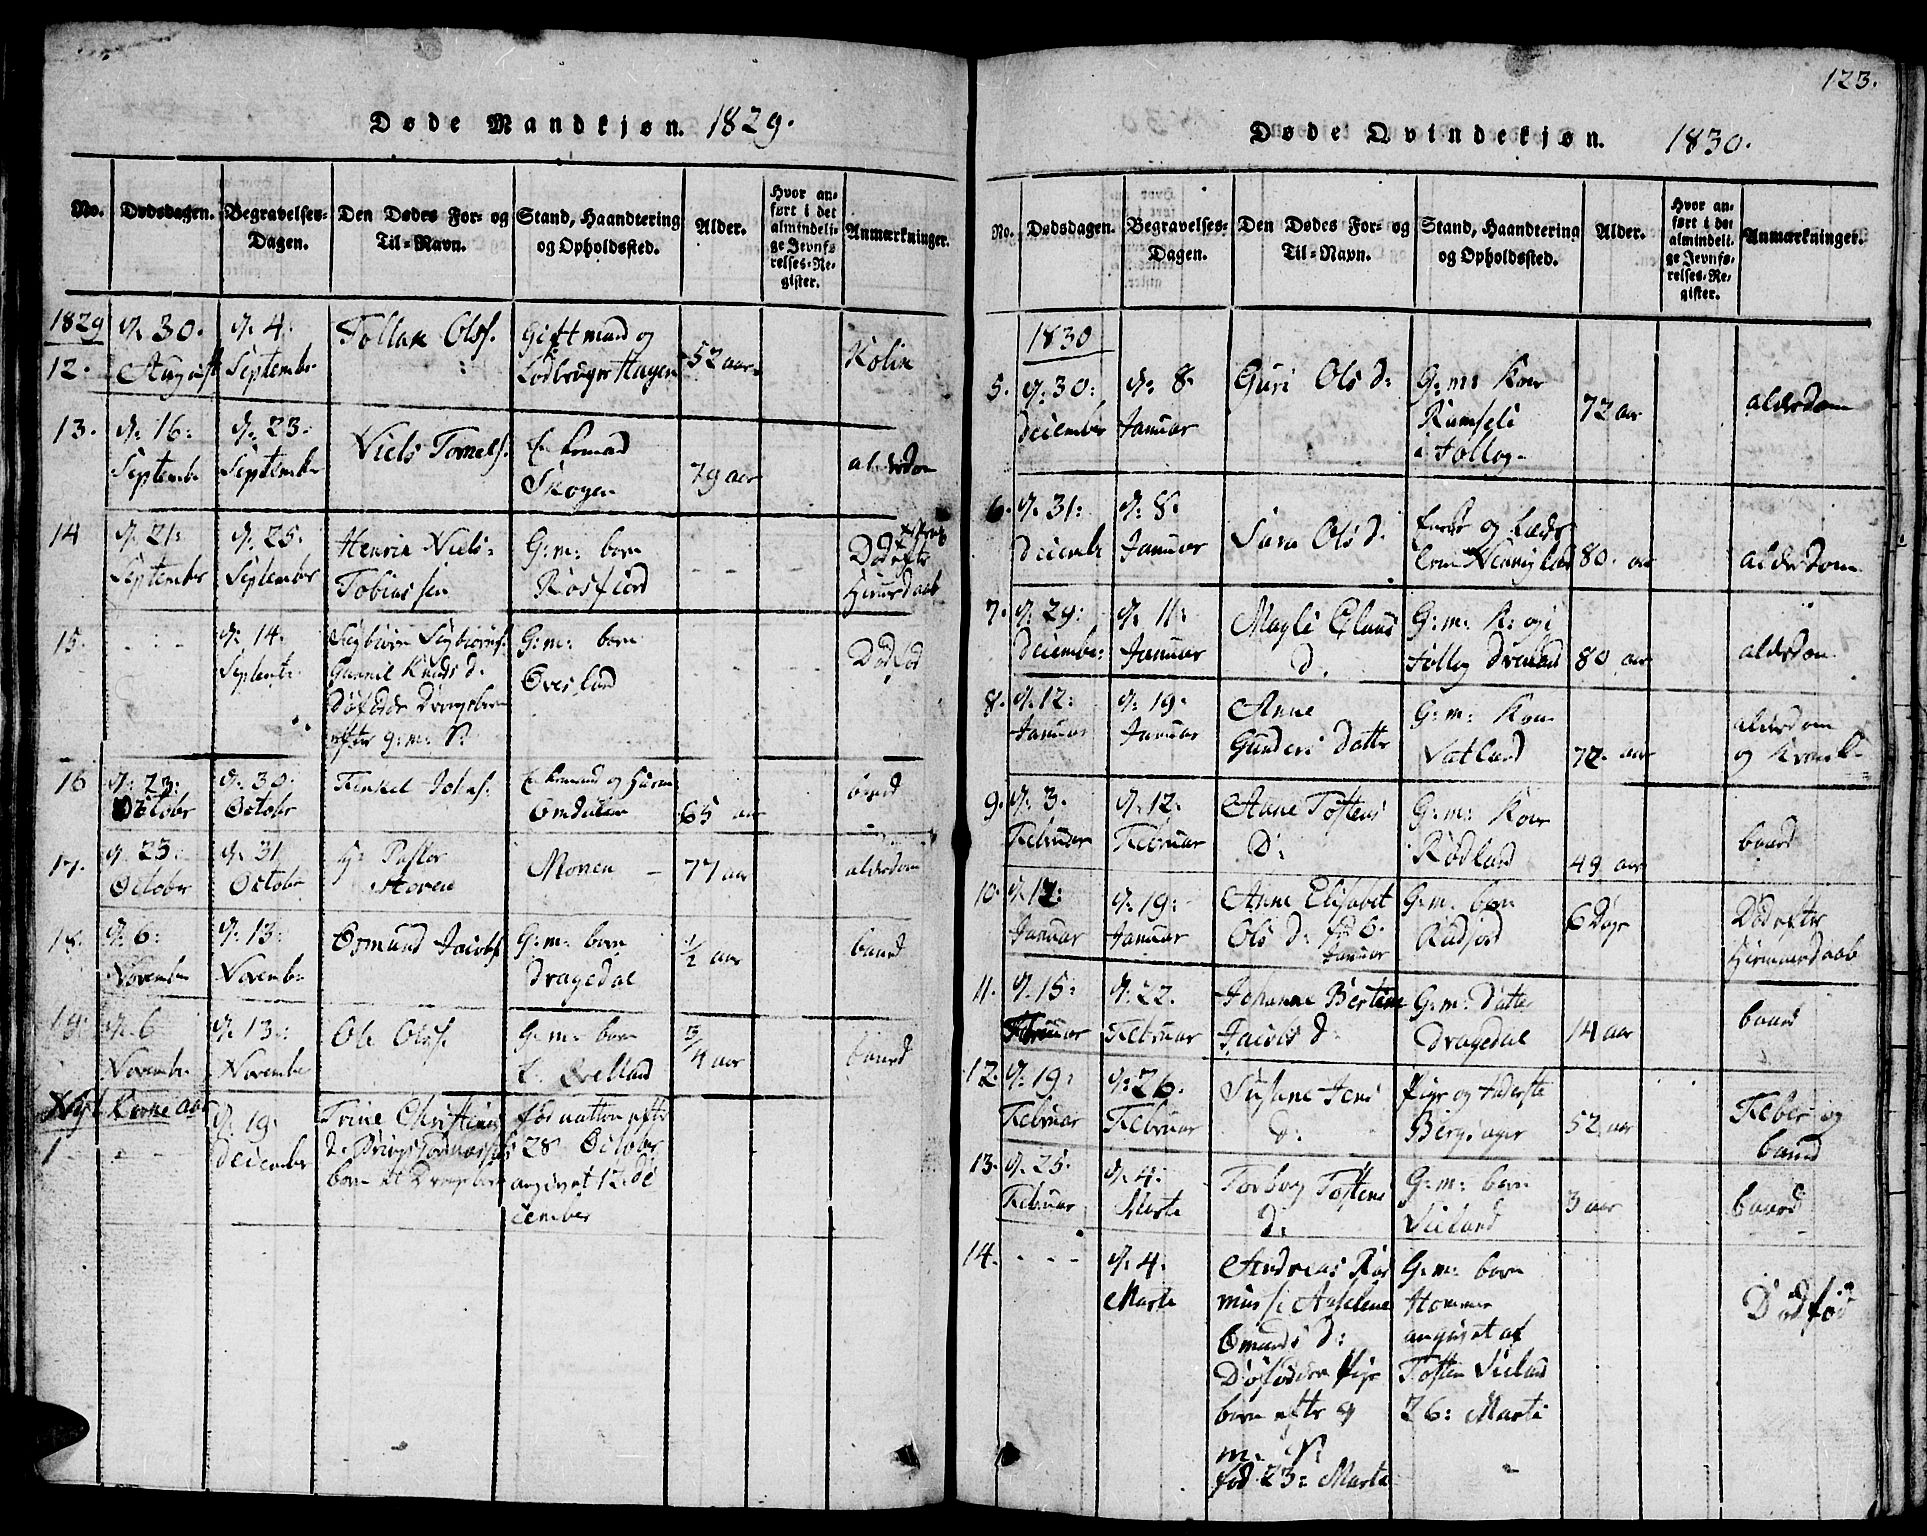 123.
Døde Mandkjøn. 1829.
No.
Dødsdagen.
Begravelses-
Dagen.
Den Dødes For- og
Til-Navn.
Stand, Haandtering
og Opholdssted.
Alder.
Hvor an-
ført i det
almindeli-
ge Jevnfø-
relses-Re-
gister.
Anmærkninger.
1829
12.
d. 30.
August
d. 4.
September
Tollak Ols.
Gift mand og
Hagen
52 aar
Kolik
13.
d. 16:
September
d. 23:
September
Niels
Enkemand
Skogen
79 aar
alderdom
14
d. 21:
September
d. 25:
September
Henrik Niels-
Tobiassen
G: m: barn
Rosfiord
Død efter
Hiemedaab
15.
d. 14.
Septembr
Gunnil Knuds d.
efter g: m: F:
G: m: barn
Øvesland
Dødfød
16
d: 23:
Octobr
d: 30:
Octobr
Tenkel Johns:
Enkemand og
Omdalen
65 aar
17.
d. 23:
October
d. 31
Octobr
Pastor
Hoven
Monen
77 aar
alderdom
18.
d. 6:
Novembr
d. 13:
Novembr
Osmund Jacobs
G: m: barn
Dragedal
1/2 aar
baand
19.
d. 6
Novembr
d. 13:
Novembr
Ole Ols.
G: m: barn
Qvelland
3/4 aar
baand
Nyt Kirke aar
1
d. 19:
December
Trine Christens
d.
barn
fød natten efter
28 October
angivet 12 de
cember
Døde Qvindekjøn. 1830.
No.
Dødsdagen.
Begravelses-
Dagen.
Den Dødes For- og
Til-Navn.
Stand, Haandtering
og Opholdssted.
Alder.
Hvor an-
ført i det
almindeli-
ge Jevnfø-
relses-Re-
gister.
Anmærkninger.
1830
5.
d: 30:
December
d: 8.
Januar
Guri Ols d:
G: m: Kone
Ramseli
i Follog
72 aar
alderdom
6.
d. 31:
Decembr
d. 8.
Januar
Sara Ols d.
80 aar
alderdom
7.
d. 29:
December
d. 11:
Januar
Magli Eland
d.
G: m: K: og i
Follog
80 aar
alderdom
8.
d. 12:
Januar
d. 19.
Januar
Anne
Gunders Datter
G: m: Kone
Vatland
72 aar
alderdom
og
9.
d. 3.
Februar
d. 12.
Februar
Anne Tostens
D:
G: m: Kone
Rødland
49 aar
baand
10.
d. 12:
Januar
d. 19:
Januar
Anne Elisabet
Ols d. fød 6.
Januar
G: m: barn
Rødfjord
6 Dage
Død efter
Hiemedaab
11.
d. 15:
Februar
d. 22.
Februar
Johanne Bertine
Jacobs d:
G: m: Datter
Dragedal
14 aar
baand
12.
d. 19:
Februar
d: 26.
Februar
Susane Jens
d:
Pige og Inderste
Bergsager
52 aar
Feber og
baand
13.
d. 25.
Februar
d. 4.
Marts
Torborg Tostens
d:
G: m: barn
Seiland
3 aar
baand
14.
d. 4.
Marts
Andreas Ras
mus s: Anselene
Omunds d:
Dødfødde Pige
barn efter g
m: F:
fød 23: Marts
G: m: barn
Homme
angivet af
Tosten Seiland
26: Marts
Dødfød